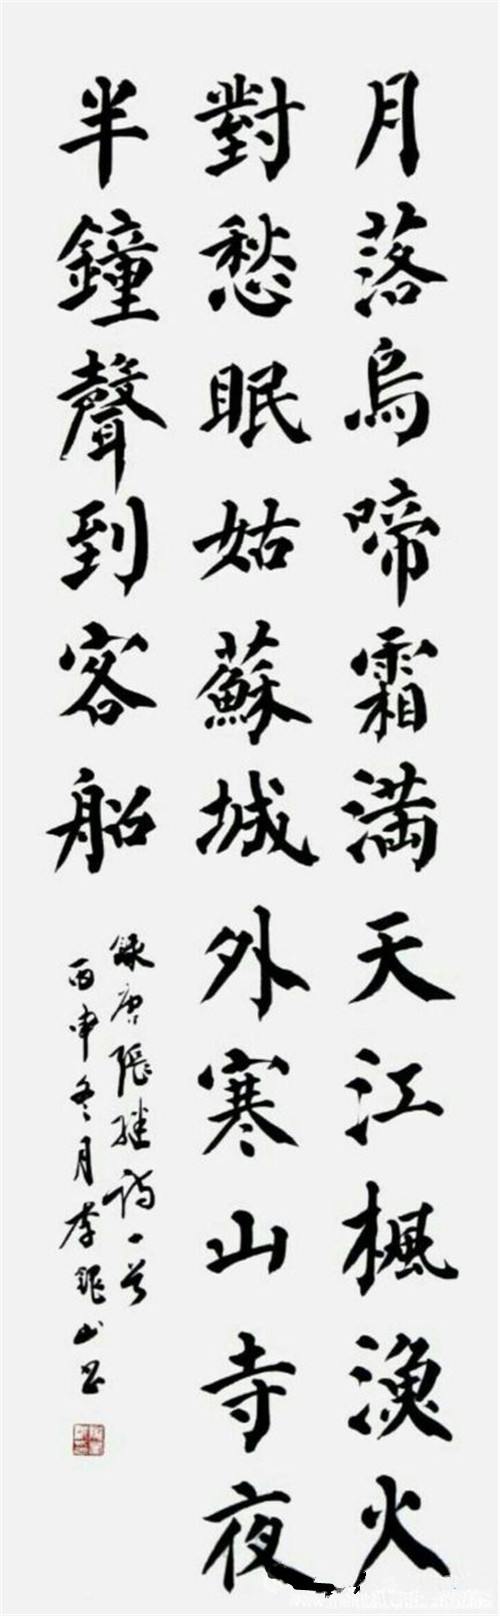 月落烏啼霜满天江楓漁火
對愁眠姑蘇城外寒山寺夜
半鐘聲到客船
錄唐張継詩一首
丙申冬月李銀山書